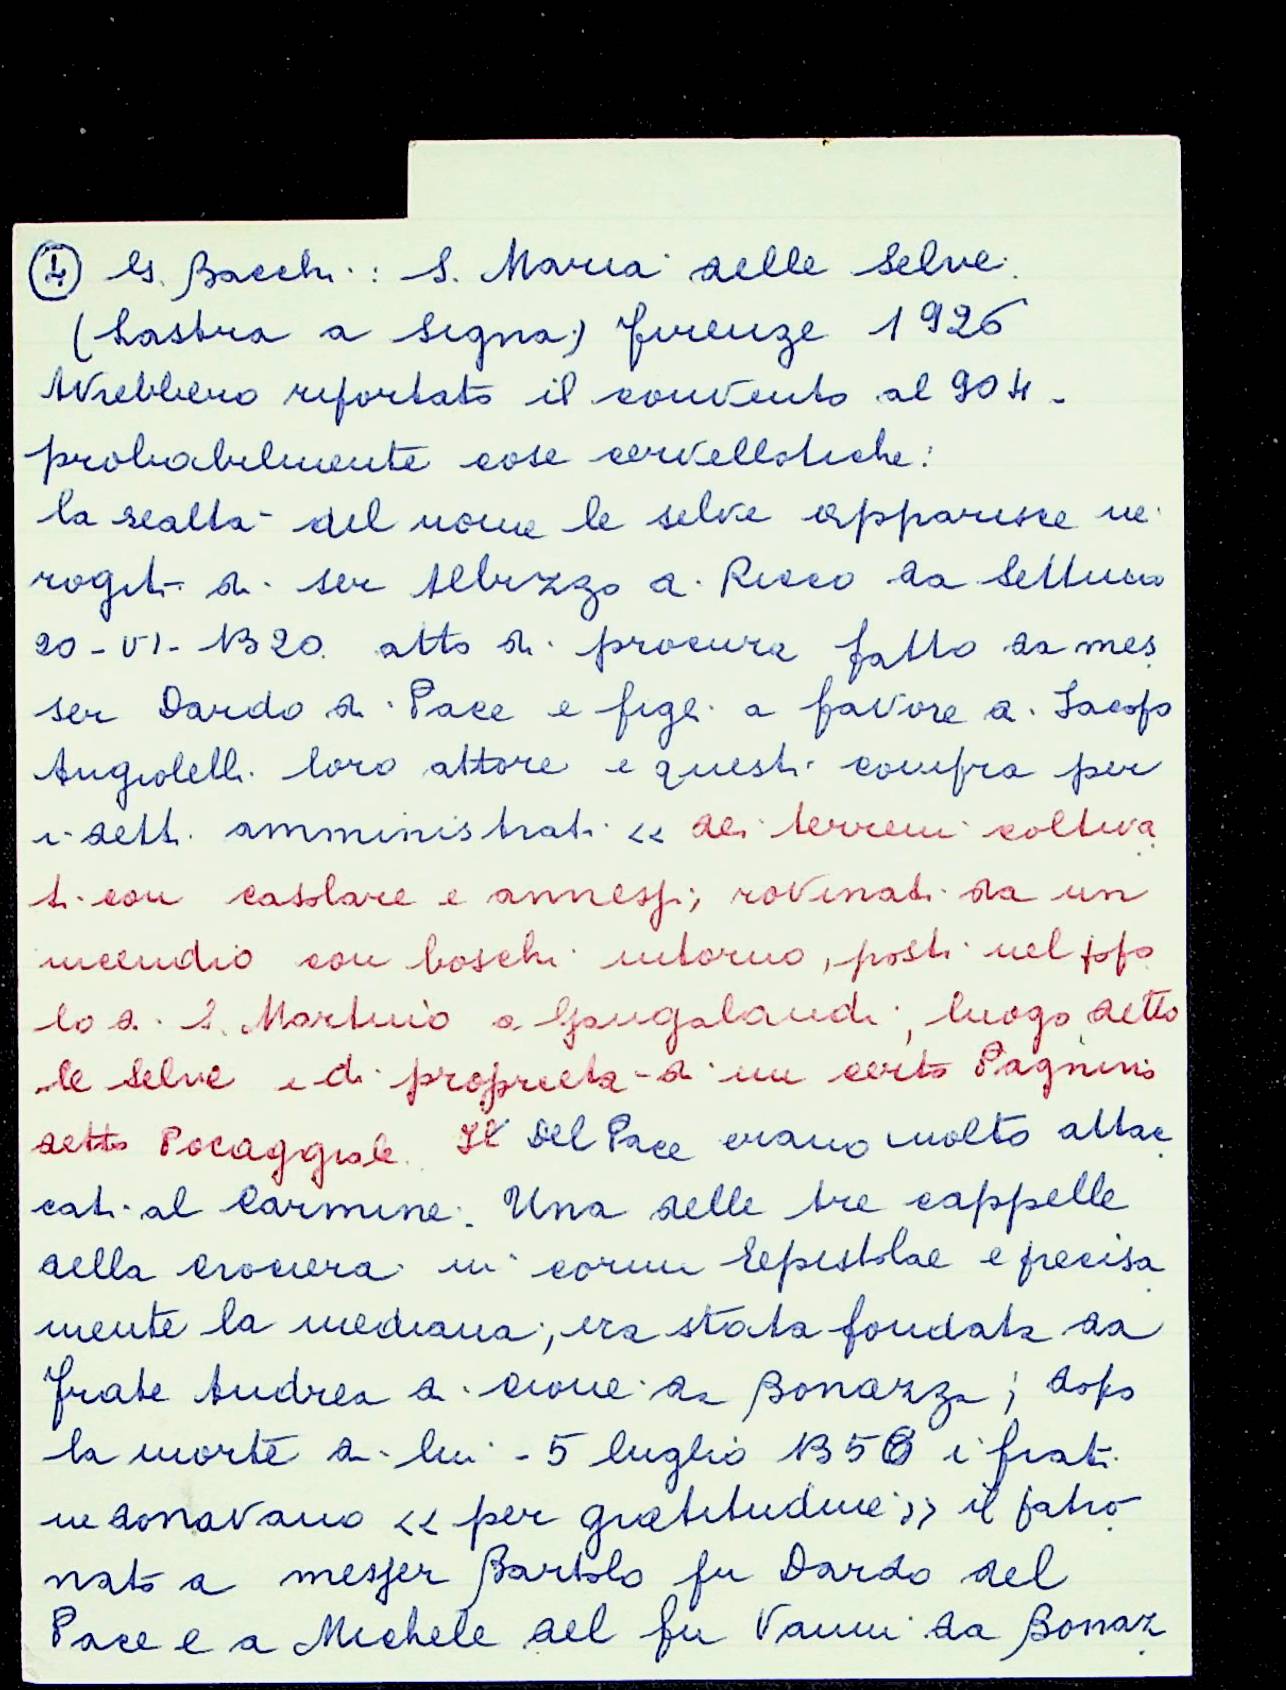 1 G. Bacchi: S. Maria delle Selve.
(Lastra a Signa) Firenze 1926
Avrebbero riportato il convento al 904 -
probabilmente cose cervellotiche:
la realtà del nome le selve apparisce ne
rogiti di ser Albizzo di Ricco da Settimo
20-VI-1320 atto di procura fatto da mes
ser Dardo di Pace e figli a favore di Jacopo
Angiolelli loro attore e questi compra per
i detti amministrati << dei terreni coltiva
ti con casolare e annessi; rovinati da un
incendio con boschi intorno, posti nel popo
lo di S. Martino a Gangalandi, luogo detto
le Selve e di proprietà di un certo Pagnino
detto Pocaggiole. Il Del Pace erano molto attac
cati al Carmine. Una delle tre cappelle
della crociera in cornu Eepistolae e precisa
mente la mediana, era stata fondata da
frate Andrea di Cione da Bonazza; dopo
la morte di lui - 5 luglio 1356 i frati
ne donavano << per gratitudine >> il patro
nato a messer Bartolo fu Dardo del
Pace e a Michele del fu Vanni da Bonaz